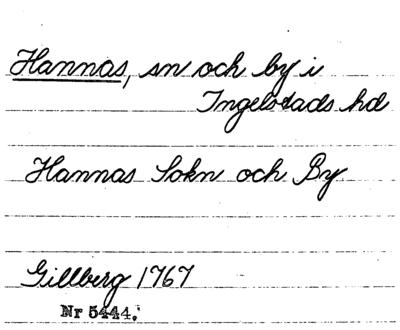 Hannas, sn och by i
Ingelstads hd
Hannas Sokn och By
Gillberg 1767
Nr 5444.